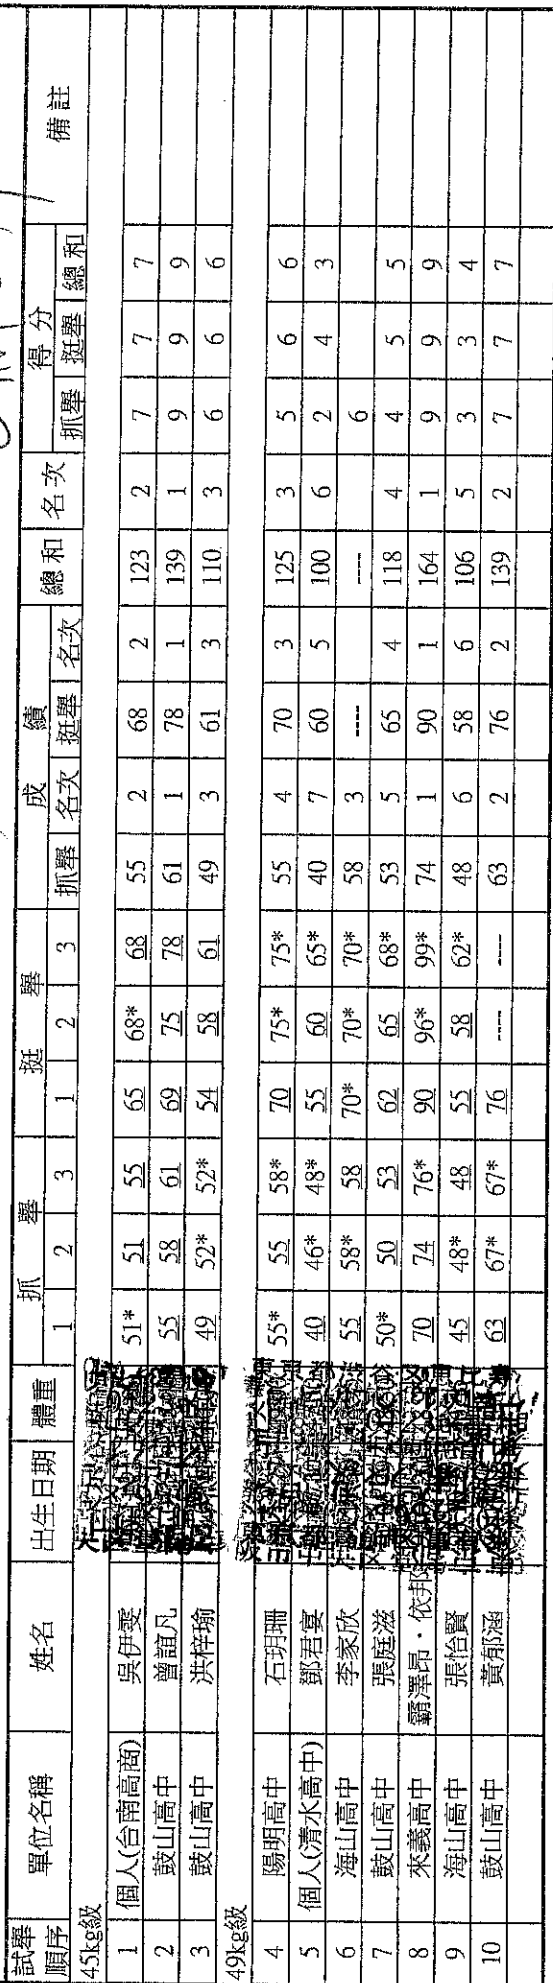 試舉順序 單位名稱 姓名 出生日期 體重 抓舉 挺舉 成績 總和 名次 得分 備註
1 2 3 1 2 3 抓舉 名次 挺舉 名次 抓舉 挺舉 總和
45kg級
1 個人(台南高商) 吳伊雯 51* 51 55 65 68* 68 55 2 68 2 123 2 7 7 7
2 鼓山高中 曾誼凡 55 58 61 69 75 78 61 1 78 1 139 1 9 9 9
3 鼓山高中 洪梓瑜 49 52* 52* 54 58 61 49 3 61 3 110 3 6 6 6
49kg級
4 陽明高中 石玥珊 55* 55 58* 70 75* 75* 55 4 70 3 125 3 5 6 6
5 個人(清水高中) 鄧君宴 40 46* 48* 55 60 65* 40 7 60 5 100 6 2 4 3
6 海山高中 李家欣 55 58* 58 70* 70* 70* 58 3 ---- ---- 6
7 鼓山高中 張庭滋 50* 50 53 62 65 68* 53 5 65 4 118 4 4 5 5
8 來義高中 霸澤昂·依邦 70 74 76* 90 96* 99* 74 1 90 1 164 1 9 9 9
9 海山高中 張怡賢 45 48* 48 55 58 62* 48 6 58 6 106 5 3 3 4
10 鼓山高中 黃郁涵 63 67* 67* 76 ---- ---- 63 2 76 2 139 2 7 7 7